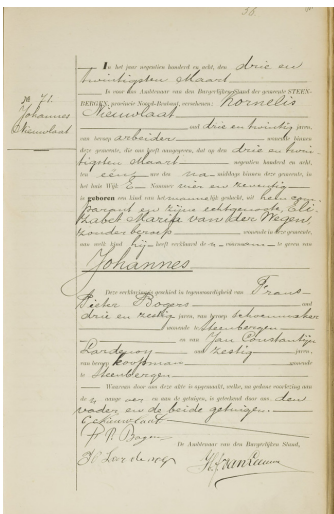 36
In het jaar negentien honderd en acht, den drie en
twintigsten Maart
is voor ons Ambtenaar van den Burgerlijken Stand der gemeente STEEN-
BERGEN, provincie Noord-Brabant, verschenen: Kornelis
No 71.
Johannes
Nieuwlaat
Nieuwlaat
oud drie en twintig jaren,
van beroep arbeider wonende binnen
deze gemeente, die ons heeft aangegeven, dat op den drie en twin-
tigsten Maart negentien honderd en acht,
ten een ure des na-middags binnen deze gemeente, in
het huis Wijk E Nummer vier en zeventig
is geboren een kind van het mannelijk geslacht, uit hem com-
parant en zijne echtgenoote, Eli-
zabeth Maria van der Wegen
zonder beroep wonende in deze gemeente,
aan welk kind hij heeft verklaard de voornaam te geven van
Johannes
Deze verklaring is geschied in tegenwoordigheid van Frans
Pieter Bogers oud
drie en zestig jaren, van beroep schoenmaker
wonende te Steenbergen
en van Jan Constantijn
oud zestig jaren,
van beroep koopman wonende
te Steenbergen
Waarvan door ons deze akte is opgemaakt, welke, na gedane voorlezing aan
de aangever en aan de getuigen, is geteekend door ons, den
vader en de beide getuigen.
F. P. Bogers
De Ambtenaar van den Burgerlijken Stand,